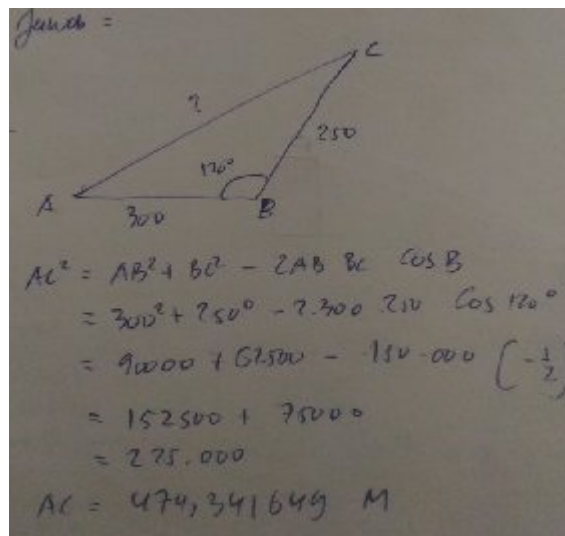 Jawab =
C
?
250
120°
A
B
300
AC² = AB² + BC² - 2AB BC Cos B
= 300² + 250° - 2.300 250 Cos 120°
= 90000 + 62500 - 150.000 (-1/2)
= 152500 + 75000
= 225.000
AC = 474,341649 M